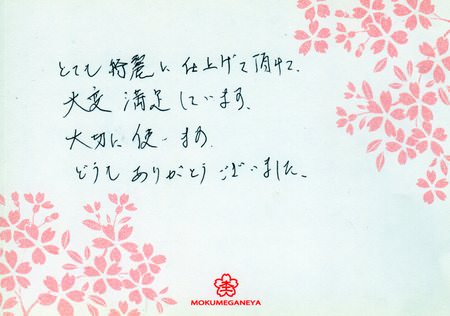 とても綺麗に仕上げて頂けて、
大変満足しています。
大切に使います。
どうもありがとうございました。
MOKUMEGANEYA